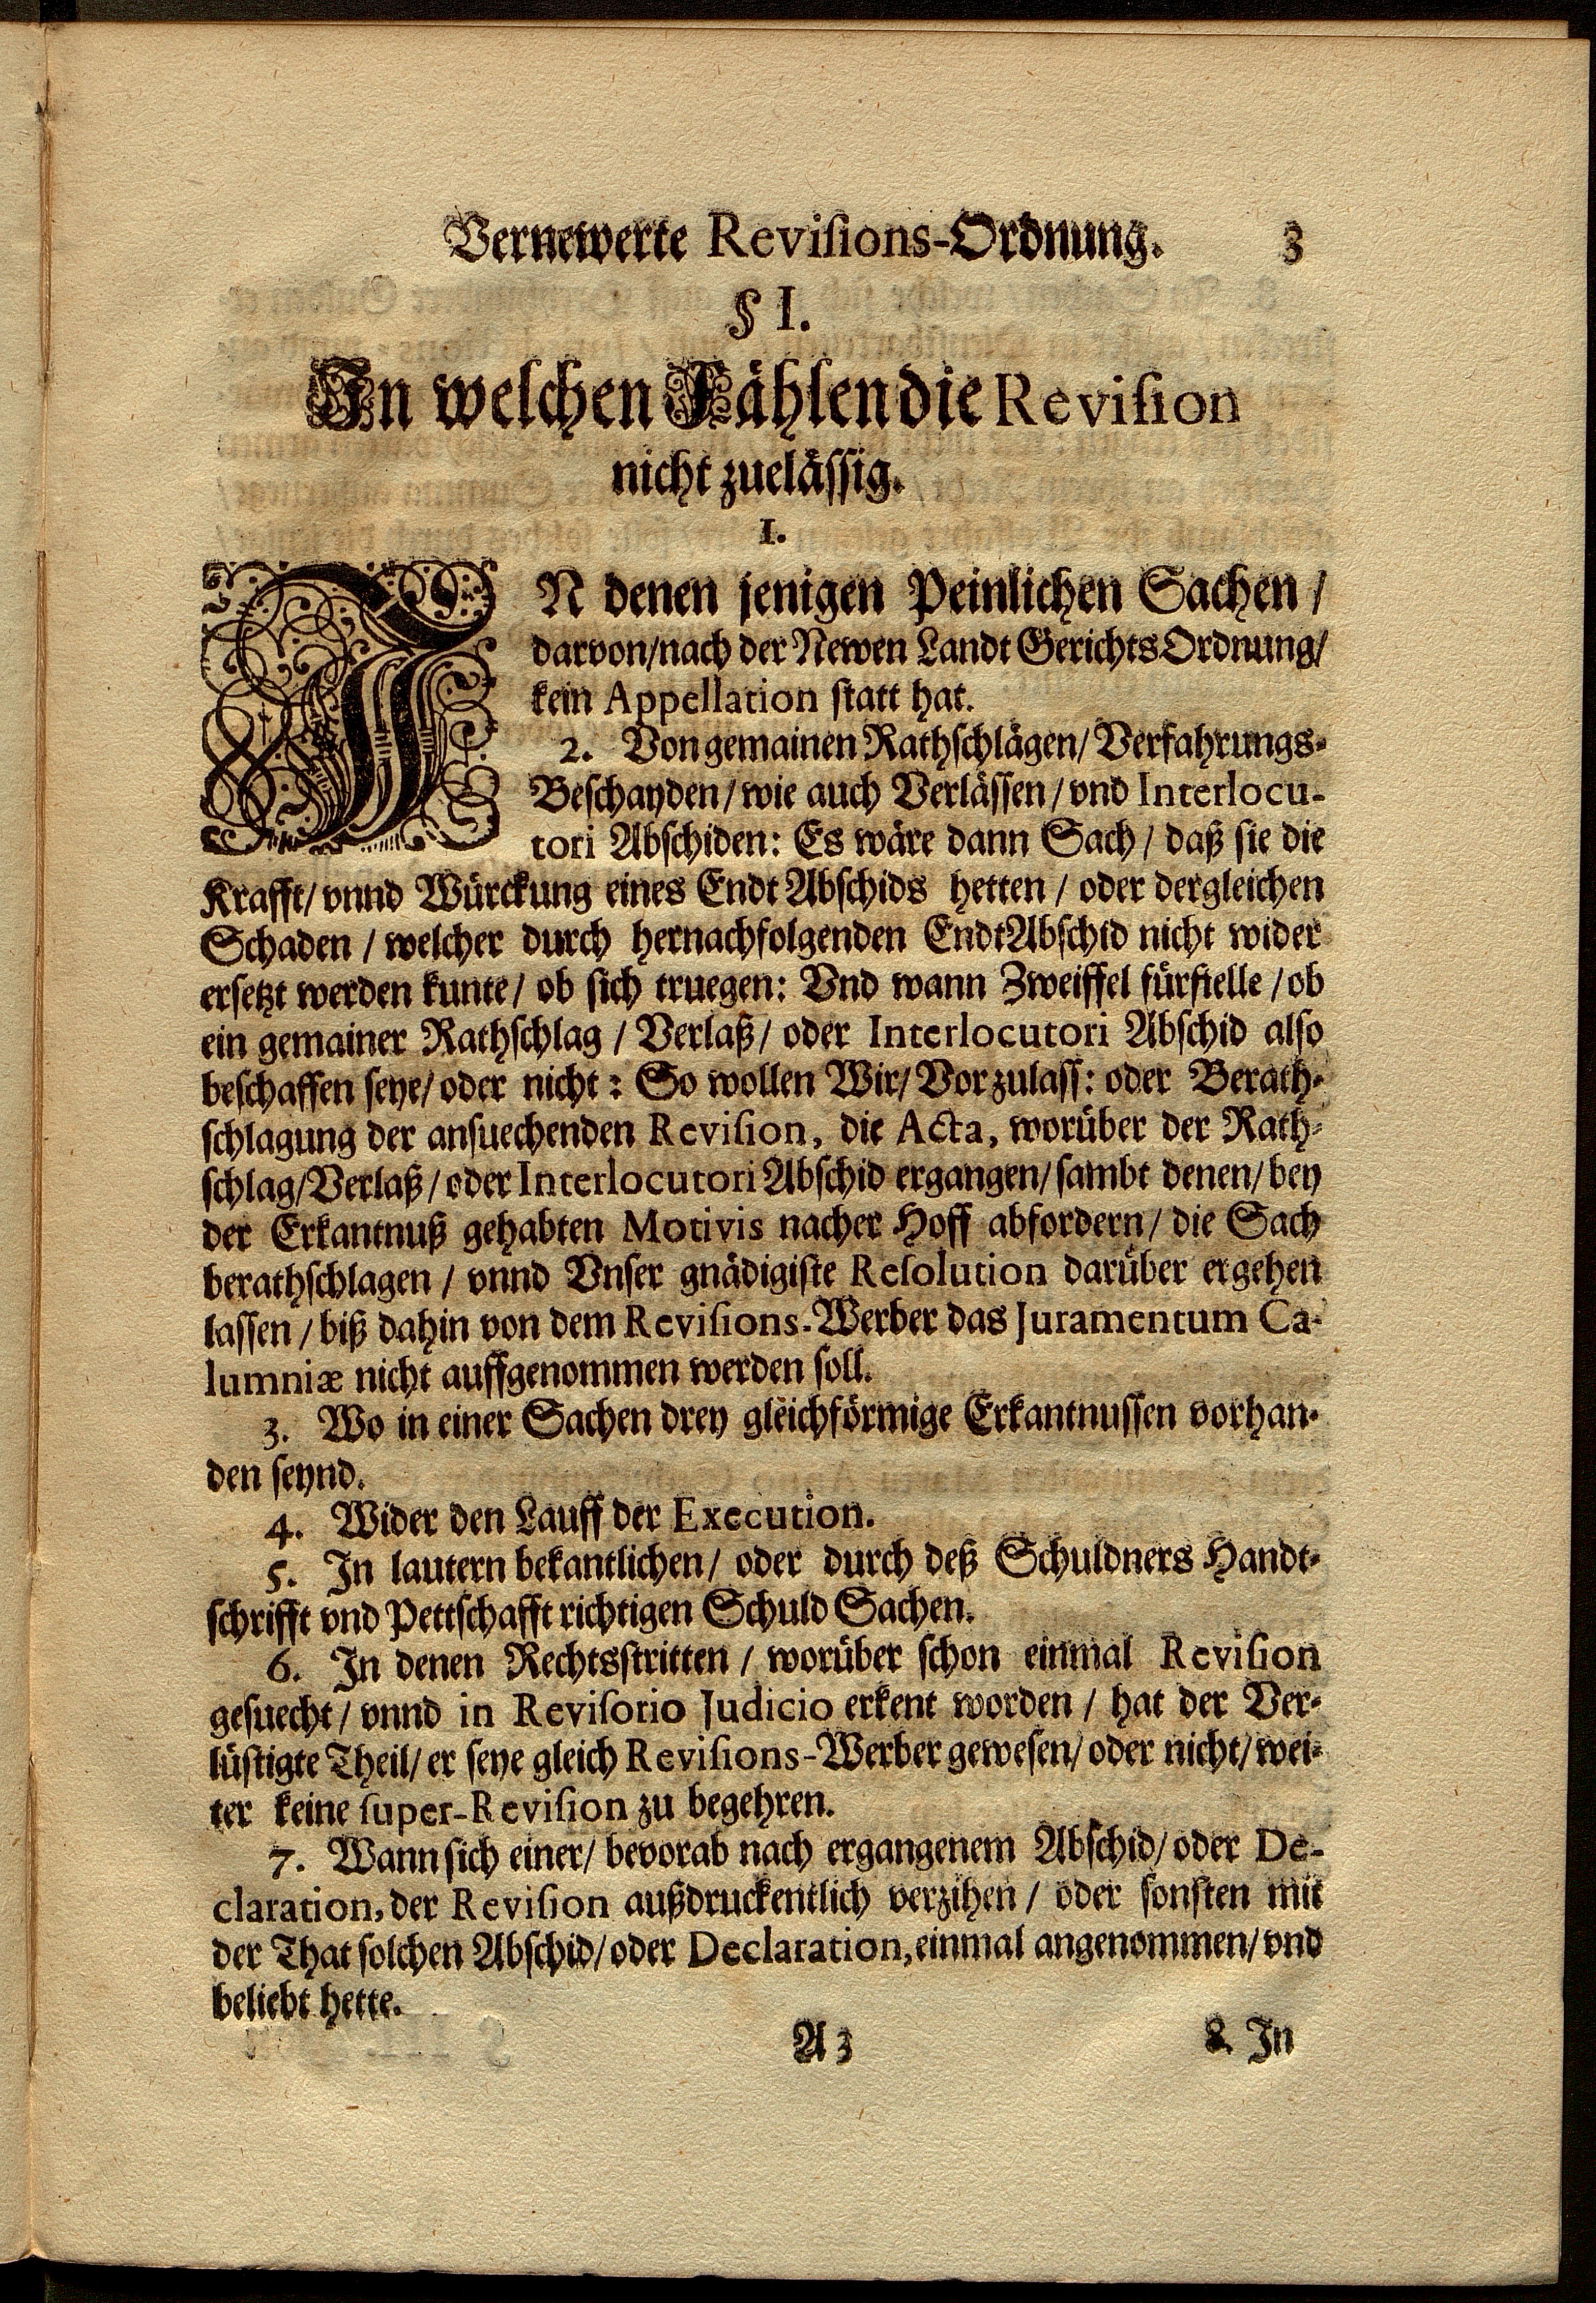 Vernewerte Revisions-Ordnung. 3
§ I.
In welchen Fählen die Revision
nicht zuelässig.
I.
IN denen jenigen Peinlichen Sachen /
darvon/nach der Newen Landt Gerichts Ordnung/
kein Appellation statt hat.
2. Von gemainen Rathschlägen/ Verfahrungs-
Beschayden / wie auch Verlässen / vnd Interlocu-
tori Abschiden: Es wäre dann Sach / daß sie die
Krafft/ vnnd Würckung eines Endt Abschids hetten / oder dergleichen
Schaden / welcher durch hernachfolgenden EndtAbschid nicht wider
ersetzt werden kunte / ob sich truegen: Vnd wann Zweiffel fürfielle / ob
ein gemainer Rathschlag / Verlaß / oder Interlocutori Abschid also
beschaffen seye/ oder nicht: So wollen Wir/ Vor zulass: oder Berath-
schlagung der ansuechenden Revision, die Acta, worüber der Rath-
schlag/Verlaß / oder Interlocutori Abschid ergangen/ sambt denen/ bey
der Erkantnuß gehabten Motivis nacher Hoff abfordern / die Sach
berathschlagen / vnnd Vnser gnädigiste Resolution darüber ergehen
lassen / biß dahin von dem Revisions-Werber das Juramentum Ca-
lumniæ nicht auffgenommen werden soll.
3. Wo in einer Sachen drey gleichförmige Erkantnussen vorhan-
den seynd.
4. Wider den Lauff der Execution.
5. In lautern bekantlichen/ oder durch deß Schuldners Handt-
schrifft vnd Pettschafft richtigen Schuld Sachen.
6. In denen Rechtsstritten / worüber schon einmal Revision
gesuecht / vnnd in Revisorio Judicio erkent worden / hat der Ver-
lüstigte Theil/ er seye gleich Revisions-Werber gewesen/ oder nicht/ wei-
ter keine super-Revision zu begehren.
7. Wann sich einer/ bevorab nach ergangenem Abschid/ oder De-
claration, der Revision außdruckentlich verzihen / oder sonsten mit
der That solchen Abschid/ oder Declaration, einmal angenommen/ vnd
beliebt hette.
A 3 8. In